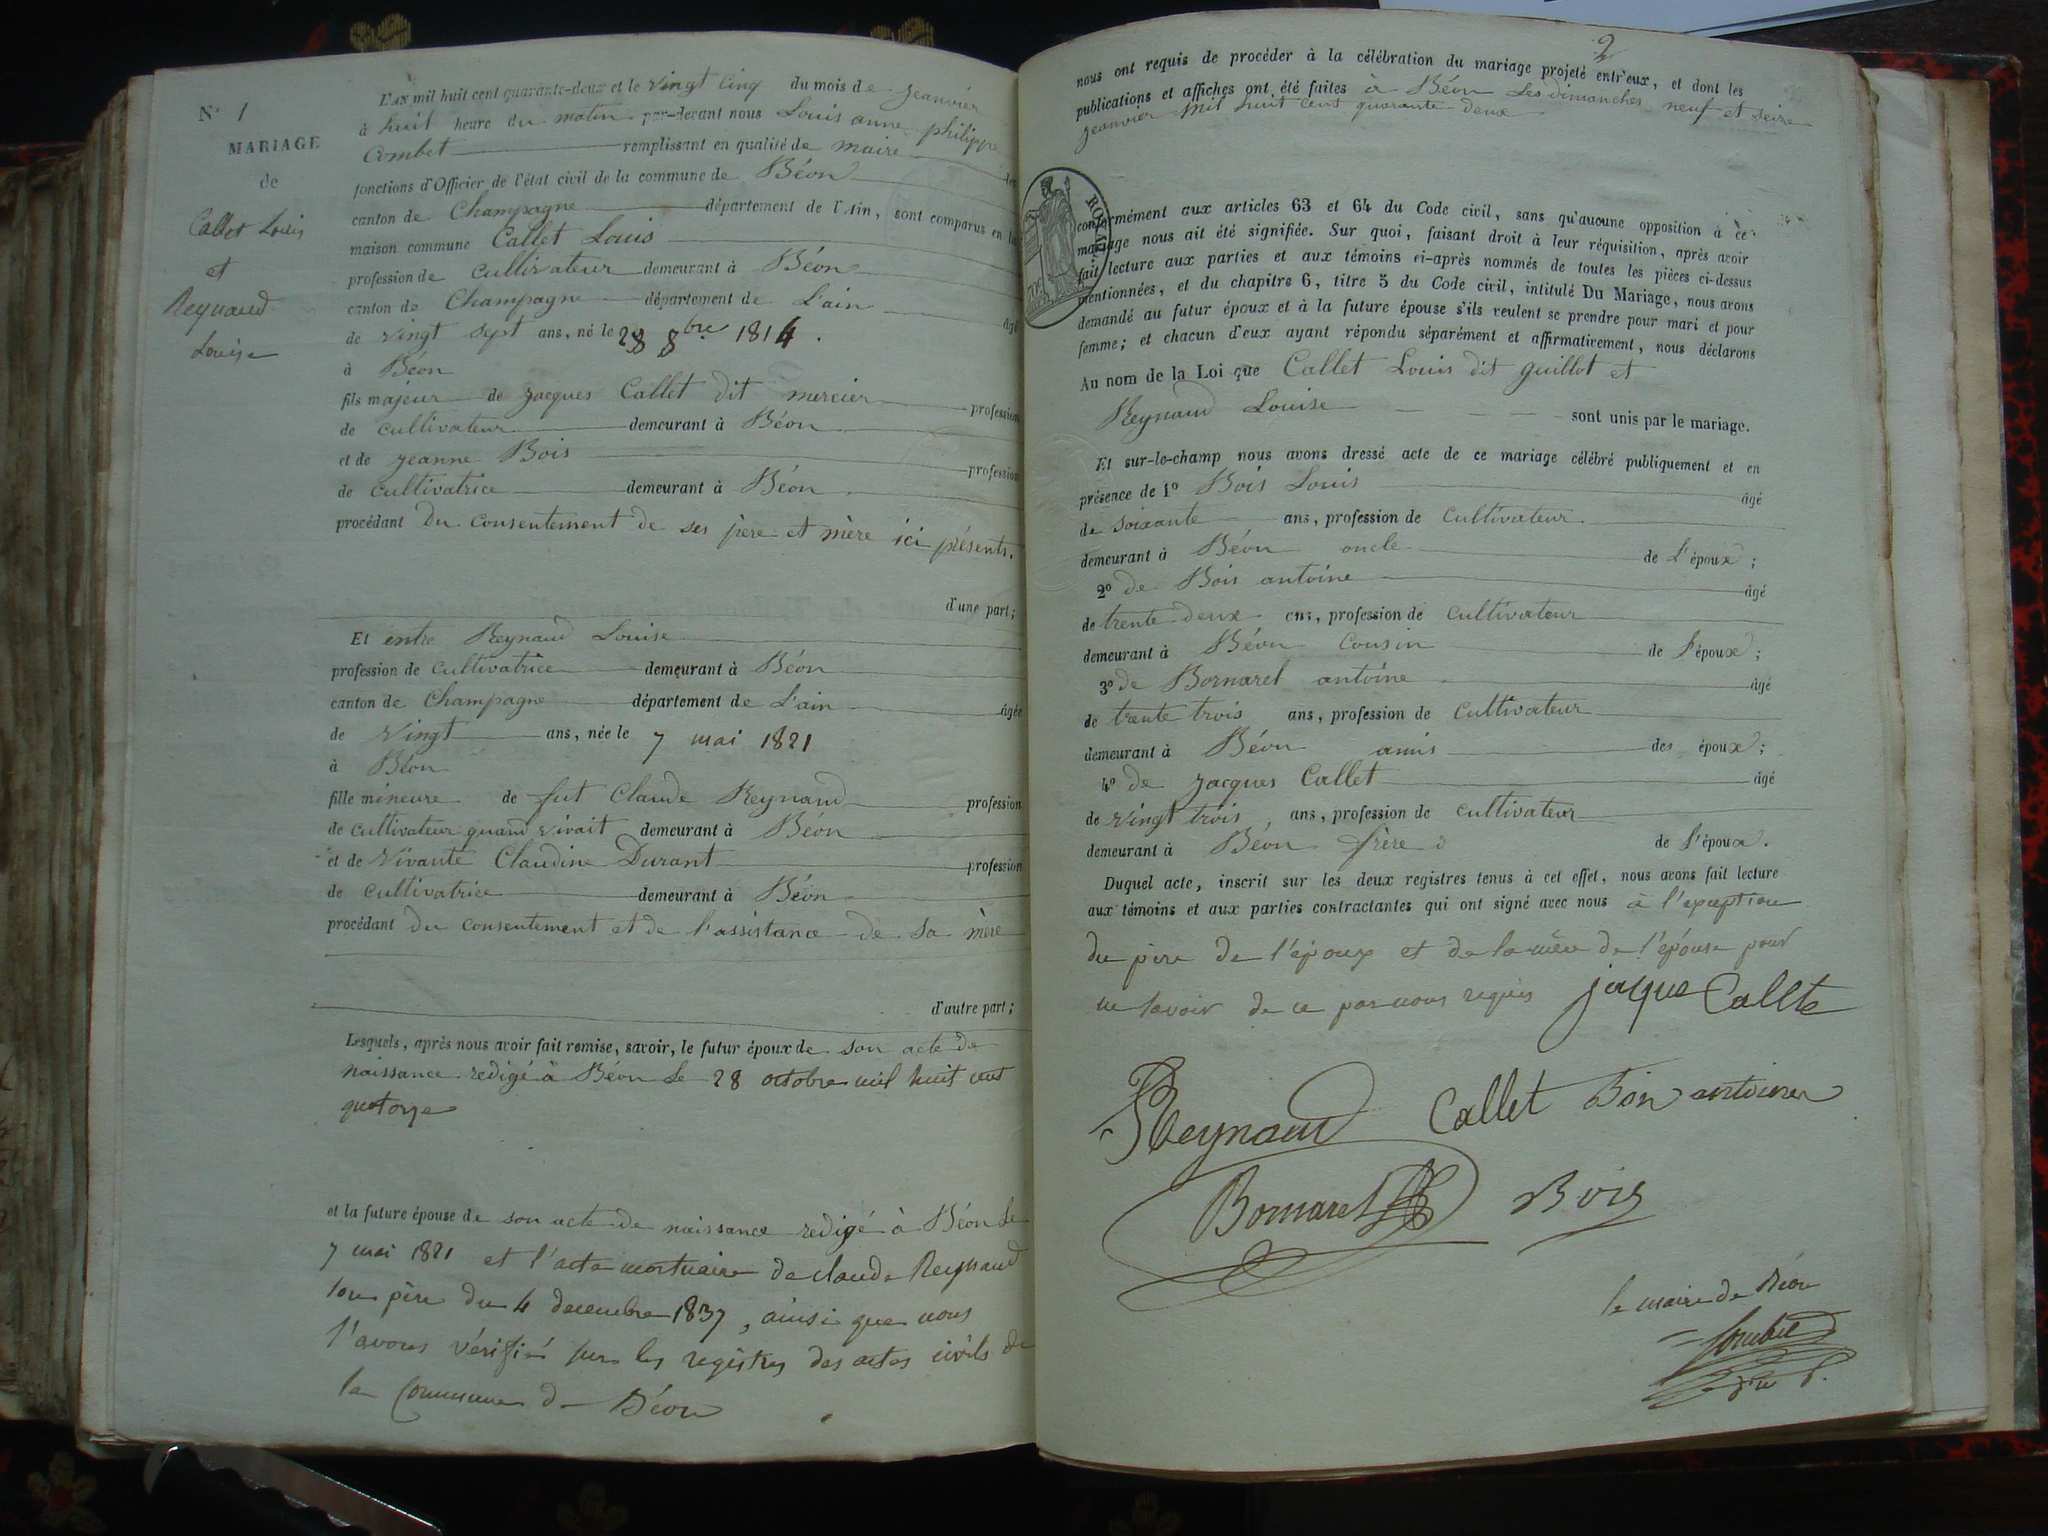 N° 1
MARIAGE
de
Callet Louis
et
Reynaud
Louise
L'an mil huit cent quarante-deux et le vingt cinq du mois de jeanvier
à huit heure du matin par-devant nous Louis anne philippe
Combet remplissant en qualité de maire les
fonctions d'Officier de l'état civil de la commune de Béon
canton de Champagne département de l'Ain, sont comparus en la
maison commune Callet Louis
profession de cultivateur demeurant à Béon
canton de Champagne département de L'ain âgé
de vingt sept ans, né le 28 8bre 1814.
à Béon
fils majeur de jacques Callet dit mercier profession
de cultivateur demeurant à Béon
et de jeanne Bois profession
de cultivatrice demeurant à Béon
procédant du consentement de ses père et mère ici présents.
d'une part;
Et entre Reynaud Louise
profession de cultivatrice demeurant à Béon
canton de Champagne département de L'ain âgée
de vingt ans, née le 7 mai 1821
à Béon
fille mineure de fut Claude Reynaud profession
de cultivateur quand vivait demeurant à Béon
et de vivante Claudine Durant profession
de cultivatrice demeurant à Béon
procédant du consentement et de l'assistance de sa mère
d'autre part;
Lesquels, après nous avoir fait remise, savoir, le futur époux de son acte de
naissance redigé à Béon le 28 octobre mil huit cent
quatorze
et la future épouse de son acte de naissance redigé à Béon le
7 mai 1821 et l'acte mortuaire de claude Reynaud
son père du 4 decembre 1837, ainsi que nous
l'avons vérifié sur les registres des actes civils de
la Commune de Béon
2
nous ont requis de procéder à la célébration du mariage projeté entr'eux, et dont les
publications et affiches ont été faites à Béon les dimanches neuf et seize
jeanvier mil huit cent quarante deux
ROYAL
conformément aux articles 63 et 64 du Code civil, sans qu'aucune opposition à ce
mariage nous ait été signifiée. Sur quoi, faisant droit à leur réquisition, après avoir
fait lecture aux parties et aux témoins ci-après nommés de toutes les pièces ci-dessus
mentionnées, et du chapitre 6, titre 5 du Code civil, intitulé Du Mariage, nous avons
demandé au futur époux et à la future épouse s'ils veulent se prendre pour mari et pour
femme; et chacun d'eux ayant répondu séparément et affirmativement, nous déclarons
Au nom de la Loi que Callet Louis dit guillot et
Reynaud Louise sont unis par le mariage.
Et sur-le-champ nous avons dressé acte de ce mariage célébré publiquement et en
présence de 1° Bois Louis âgé
de soixante ans, profession de cultivateur
demeurant à Béon oncle de l'époux;
2° de Bois antoine âgé
de trente deux ans, profession de cultivateur
demeurant à Béon cousin de l'époux;
3° de Bornarel antoine âgé
de trente trois ans, profession de cultivateur
demeurant à Béon amis des époux;
4° de jacques Callet âgé
de vingt trois ans, profession de cultivateur
demeurant à Béon frère de l'époux.
Duquel acte, inscrit sur les deux registres tenus à cet effet, nous avons fait lecture
aux témoins et aux parties contractantes qui ont signé avec nous à l'exception
du père de l'époux et de la mère de l'épouse pour
ne savoir de ce par nous requis jaque Callte
Reynaud Callet Bois antoine
Bornarel Bois
le maire de Béon
Combet